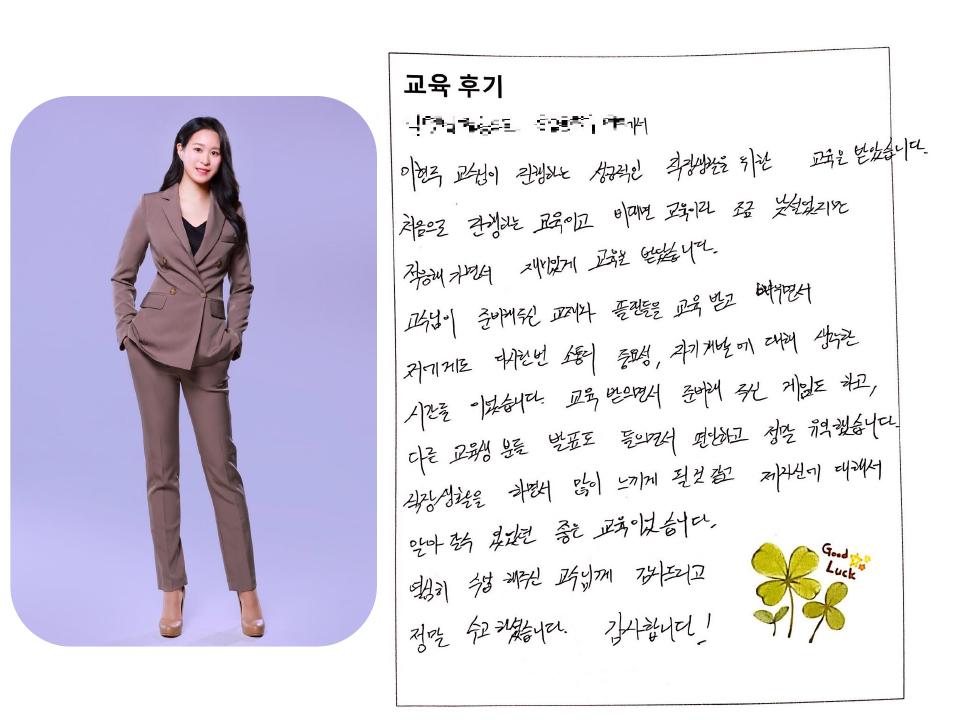 교육 후기
가서
이현주 교수님이 진행하는 성공적인 직장생활을 위한 교육을 받았습니다.
처음으로 진행하는 교육이고 비대면 교육이라 조금 낯설었지만
적응해 가면서 재미있게 교육을 받았습니다.
교수님이 준비해주신 교재와 플린들을 교육 받고 배우면서
저에게도 다시한번 소통의 중요성, 자기개발에 대해 생각한
시간들 이었습니다. 교육 받으면서 준비해 주신 게임도 하고,
다른 교육생 분들 발표도 들으면서 편안하고 정말 유익했습니다.
직장생활을 하면서 많이 느끼게 될것 같고 제자신에 대해서
알아 갈수 있었던 좋은 교육이었습니다.
열심히 수업 해주신 교수님께 감사드리고
정말 수고 하셨습니다. 감사합니다!
Good
Luck